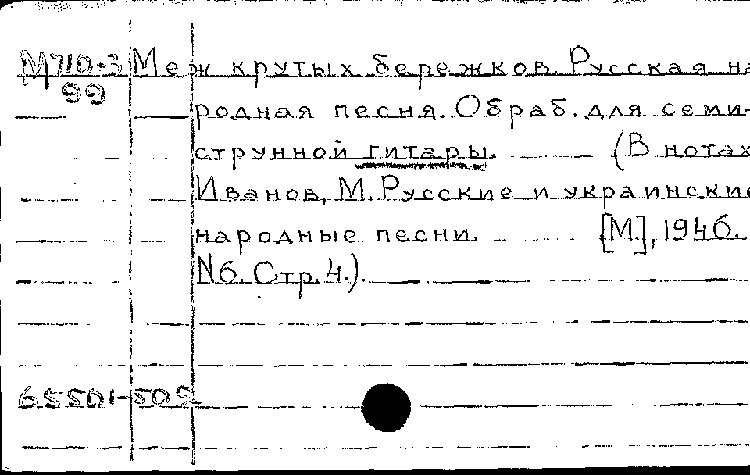 М710-3 Меж крутых бережков. Русская на
99
родная песня. Обраб. для семи-
струнной гитары. (В нотах
Иванов, М. Русские и украинские
народные песни. [М.], 1946.
N6. Стр. 4.).
65501-502